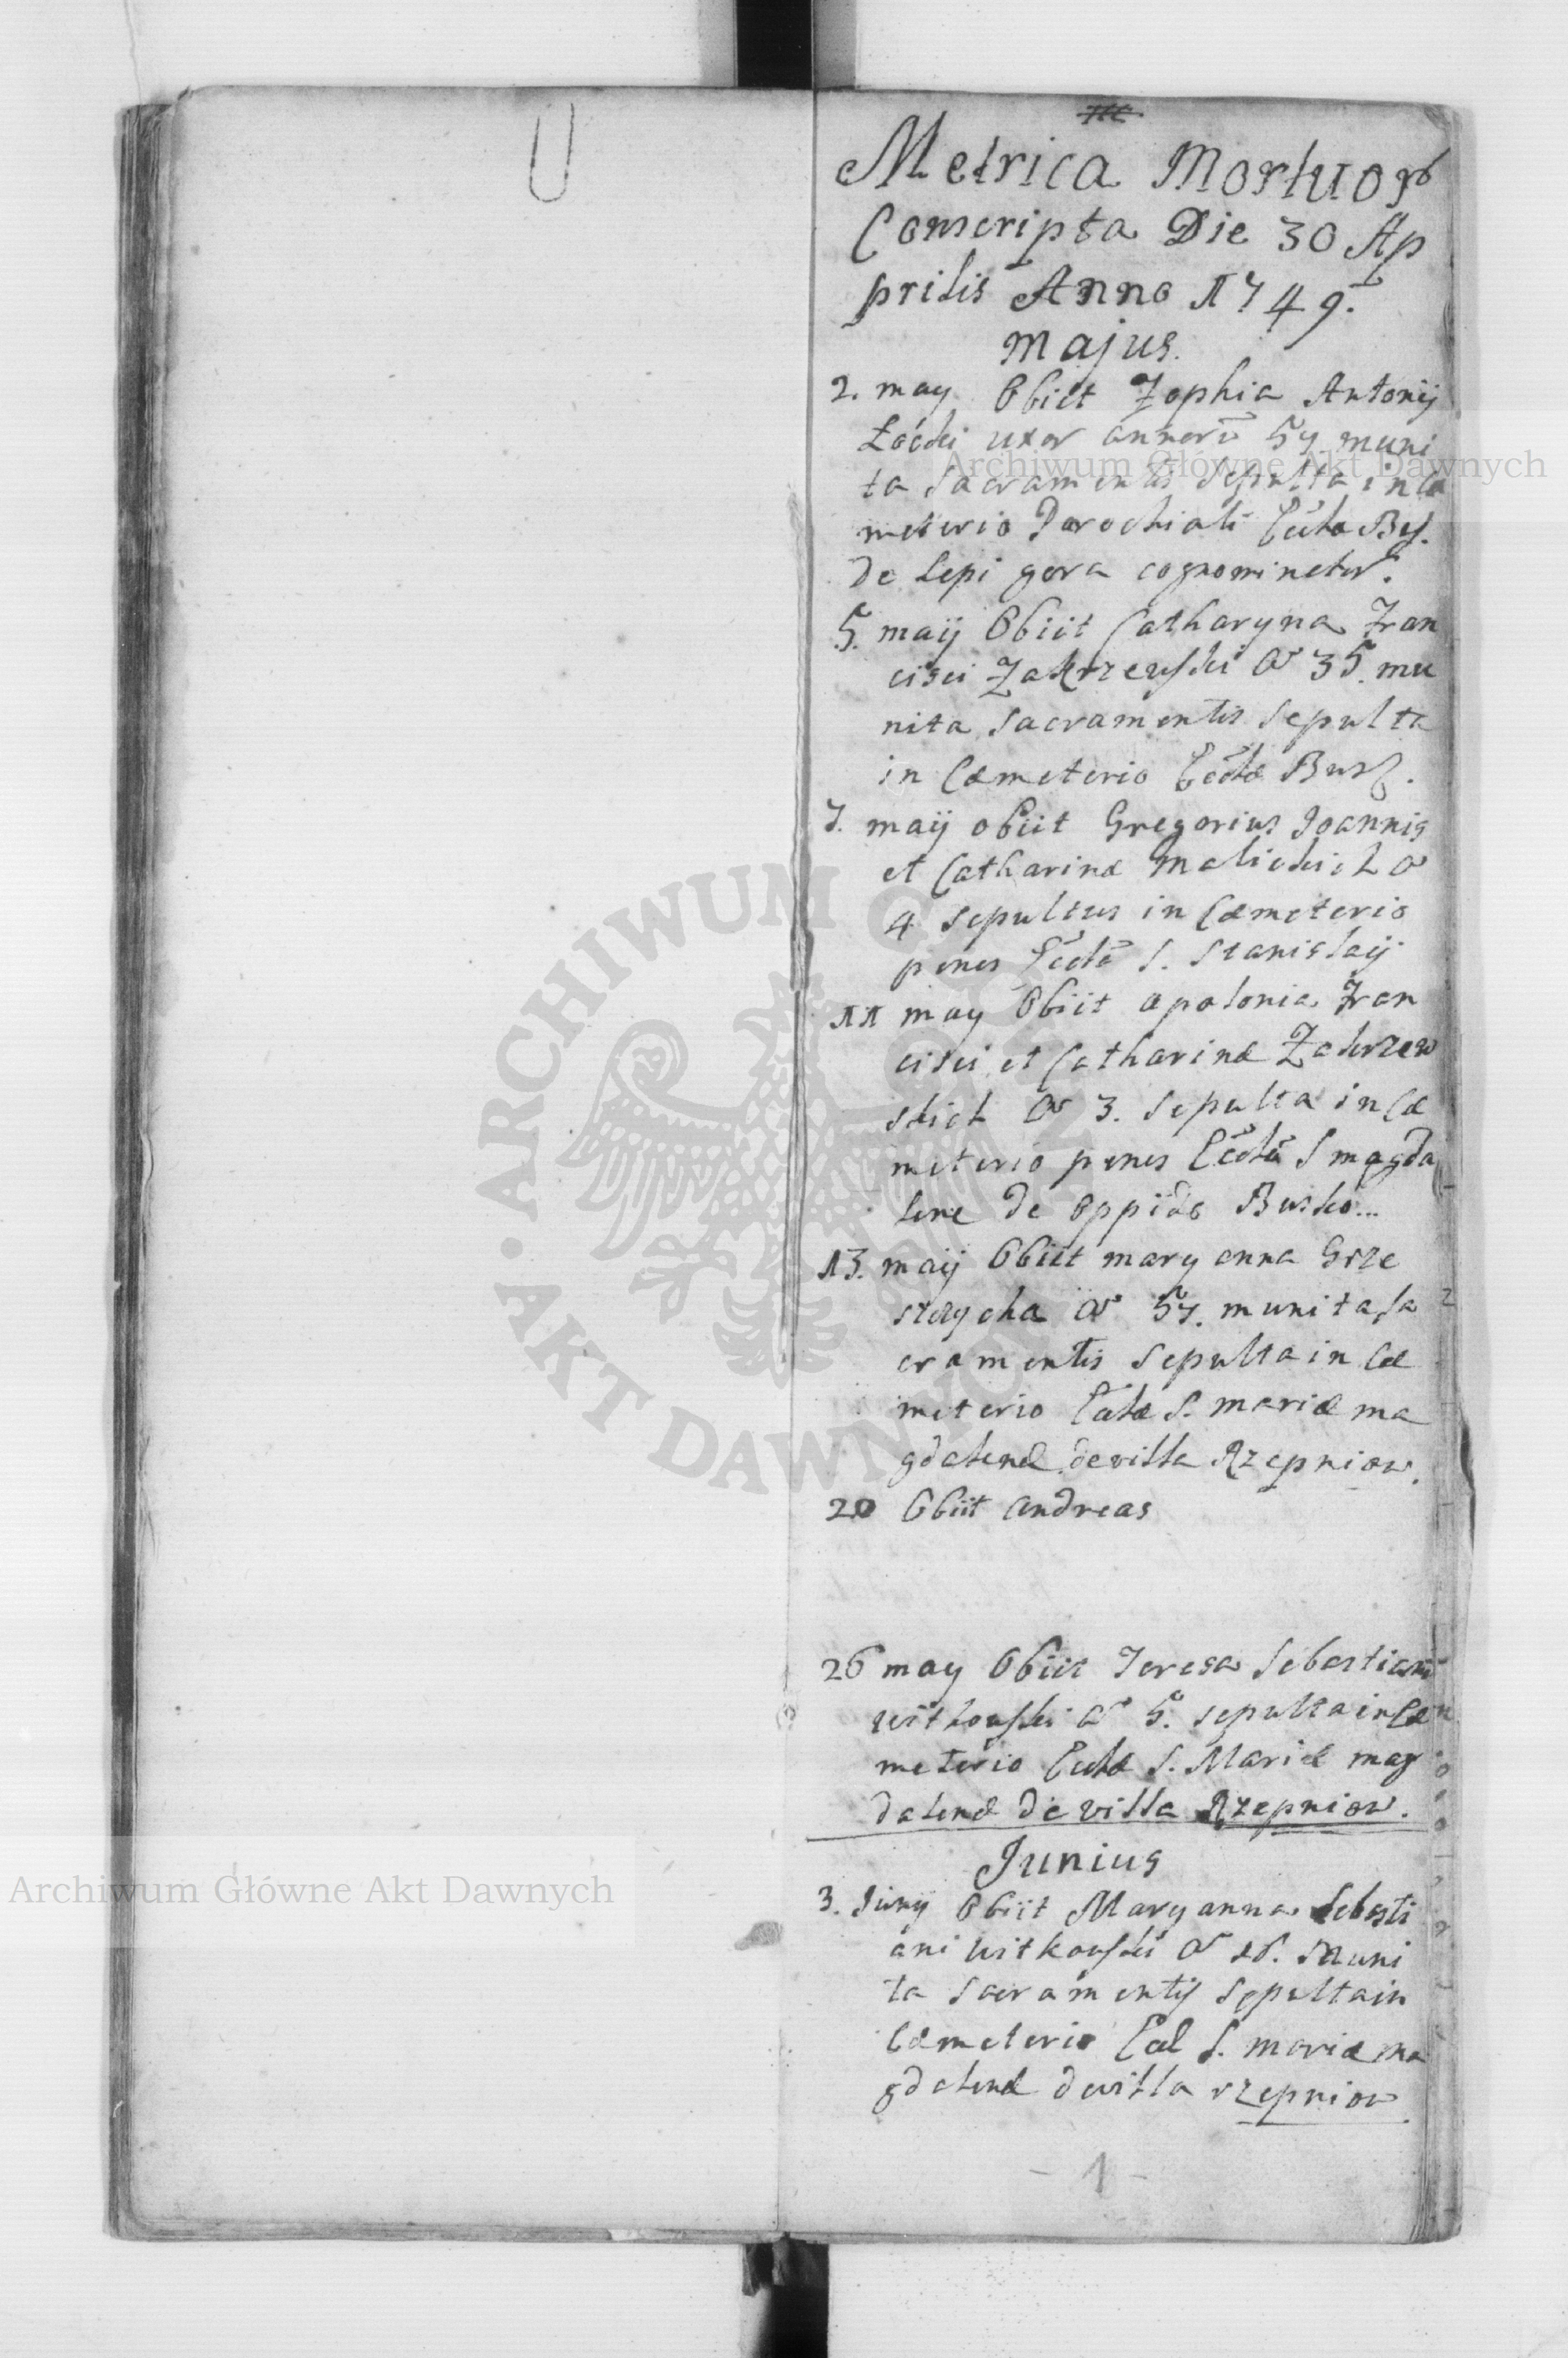 Metrica Mortuor
Conscripta Die 30 Ap
prilis Anno 1749.
Majus.
2. may Obiit Zophia Antonij
uxor annorū 57 muni
ta Sacramentis Sepulta in Cæ
meterio Parochiali Eccłæ Bus.
de Lepi gora cognominetur.
5. maij Obiit Catharyna Fran
cisci Zakrzewski A 35. mu
nita Sacramentis Sepulta
in Cæmeterio Eccłæ Busc.
7. maij obiit Gregorius Joannis
et Catharinæ Malickich A
4 sepultus in Cæmeterio
penes Eccłā S. Stanislaij
11 may Obiit Apolonia Fran
cisci et Catharinæ Zakrzew
skich A 3. Sepulta in Cæ
meterio penes Eccłā S Magda
lene de oppido Busko...
13. maij Obiit maryanna Grze
A 57. munita Sa
cramentis Sepulta in Cæ
meterio Eccłæ S. Mariæ Ma
gdalenæ de villa Rzepniow.
20 Obiit Andreas
26 may Obiit Teresa Sebastiani
Witkowski A 5. sepulta in Cæ
meterio Eccłæ S. Mariæ Mag
dalenæ de villa Rzepniow.
Junius
3. Juny Obiit Maryanna Sebasti
ani Witkowski A muni
ta Sacramentis Sepulta in
Cæmeterio Eccl S. Mariæ Ma
gdalenæ de villa rzepniow
- 1 -
Archiwum Główne Akt Dawnych
Archiwum Główne Akt Dawnych
ARCHIWUM GŁÓWNE
AKT DAWNYCH